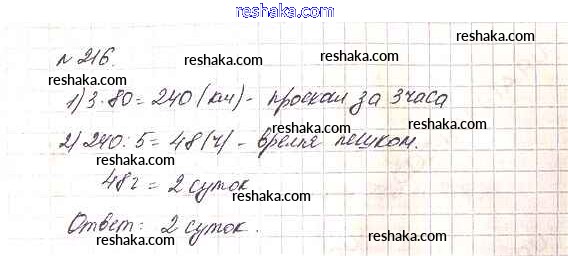 reshaka.com
№ 216.
reshaka.com reshaka.com
1) 3·80 = 240 (км) - проехал за 3 часа
reshaka.com
2) 240 : 5 = 48 (ч) - время пешком.
reshaka.com reshaka.com
48 ч = 2 суток
reshaka.com
Ответ: 2 суток.
reshaka.com reshaka.com
reshaka.com